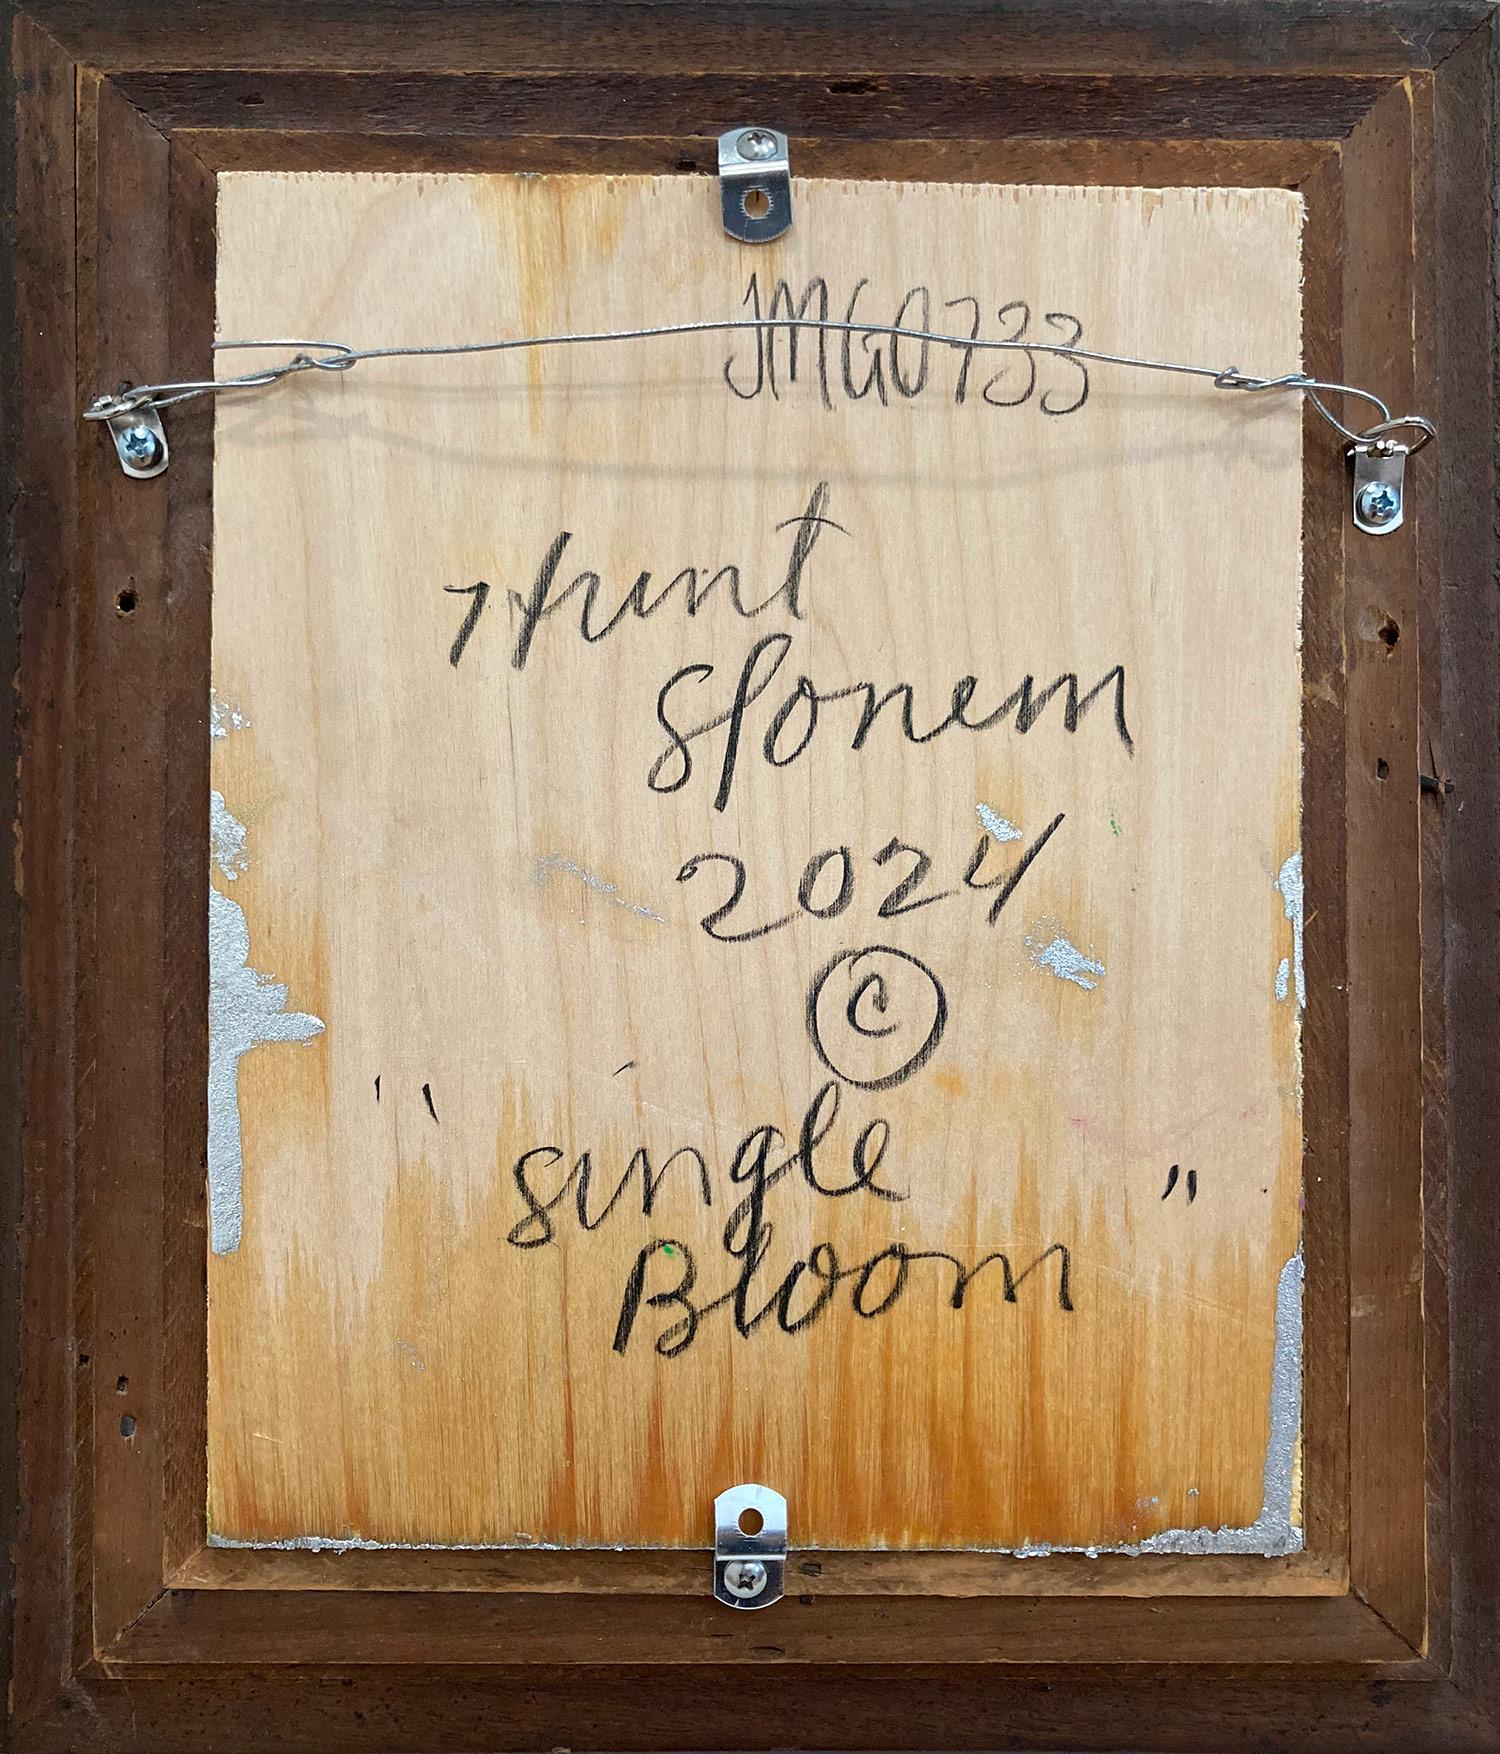 JMG0733
Hunt
Slonem
2024
©
"single
Bloom"